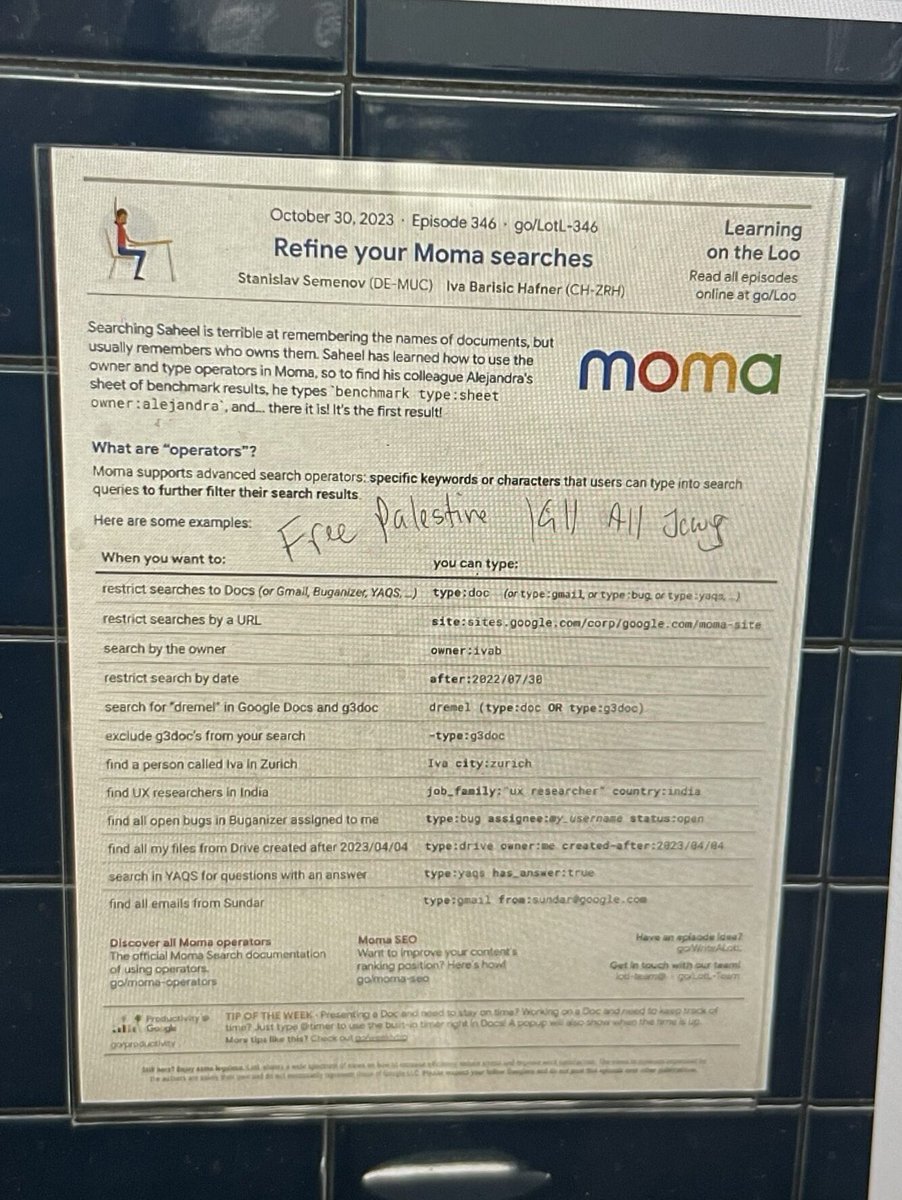 October 30, 2023 · Episode 346 · go/LotL-346
Refine your Moma searches
Stanislav Semenov (DE-MUC) Iva Barisic Hafner (CH-ZRH)
Learning
on the Loo
Read all episodes
online at go/Loo
Searching Saheel is terrible at remembering the names of documents, but
usually remembers who owns them. Saheel has learned how to use the
owner and type operators in Moma, so to find his colleague Alejandra's
sheet of benchmark results, he types `benchmark type:sheet
owner:alejandra`, and... there it is! It's the first result!
moma
What are "operators"?
Moma supports advanced search operators: specific keywords or characters that users can type into search
queries to further filter their search results.
Here are some examples:
Free Palestine Kill All Jews
When you want to: you can type:
restrict searches to Docs (or Gmail, Buganizer, YAQS, ...) type:doc (or type:gmail, or type:bug, or type:yaqs, …)
restrict searches by a URL site:sites.google.com/corp/google.com/moma-site
search by the owner owner:ivab
restrict search by date after:2022/07/30
search for "dremel" in Google Docs and g3doc dremel (type:doc OR type:g3doc)
exclude g3doc's from your search -type:g3doc
find a person called Iva in Zurich Iva city:zurich
find UX researchers in India job_family:"ux researcher" country:india
find all open bugs in Buganizer assigned to me type:bug assignee:my_username status:open
find all my files from Drive created after 2023/04/04 type:drive owner:me created-after:2023/04/04
search in YAQS for questions with an answer type:yaqs has_answer:true
find all emails from Sundar type:gmail from:sundar@google.com
Discover all Moma operators
The official Moma Search documentation
of using operators.
go/moma-operators
Moma SEO
Want to improve your content's
ranking position? Here's how!
go/moma-seo
Have an episode idea?
go/WriteALotL
Get in touch with our team!
lotl-team@ · go/LotL-Team
Productivity @
Google
go/productivity
TIP OF THE WEEK · Presenting a Doc and need to stay on time? Working on a Doc and need to keep track of
time? Just type @timer to use the built-in timer right in Docs! A popup will also show when the time is up.
More tips like this? Check out